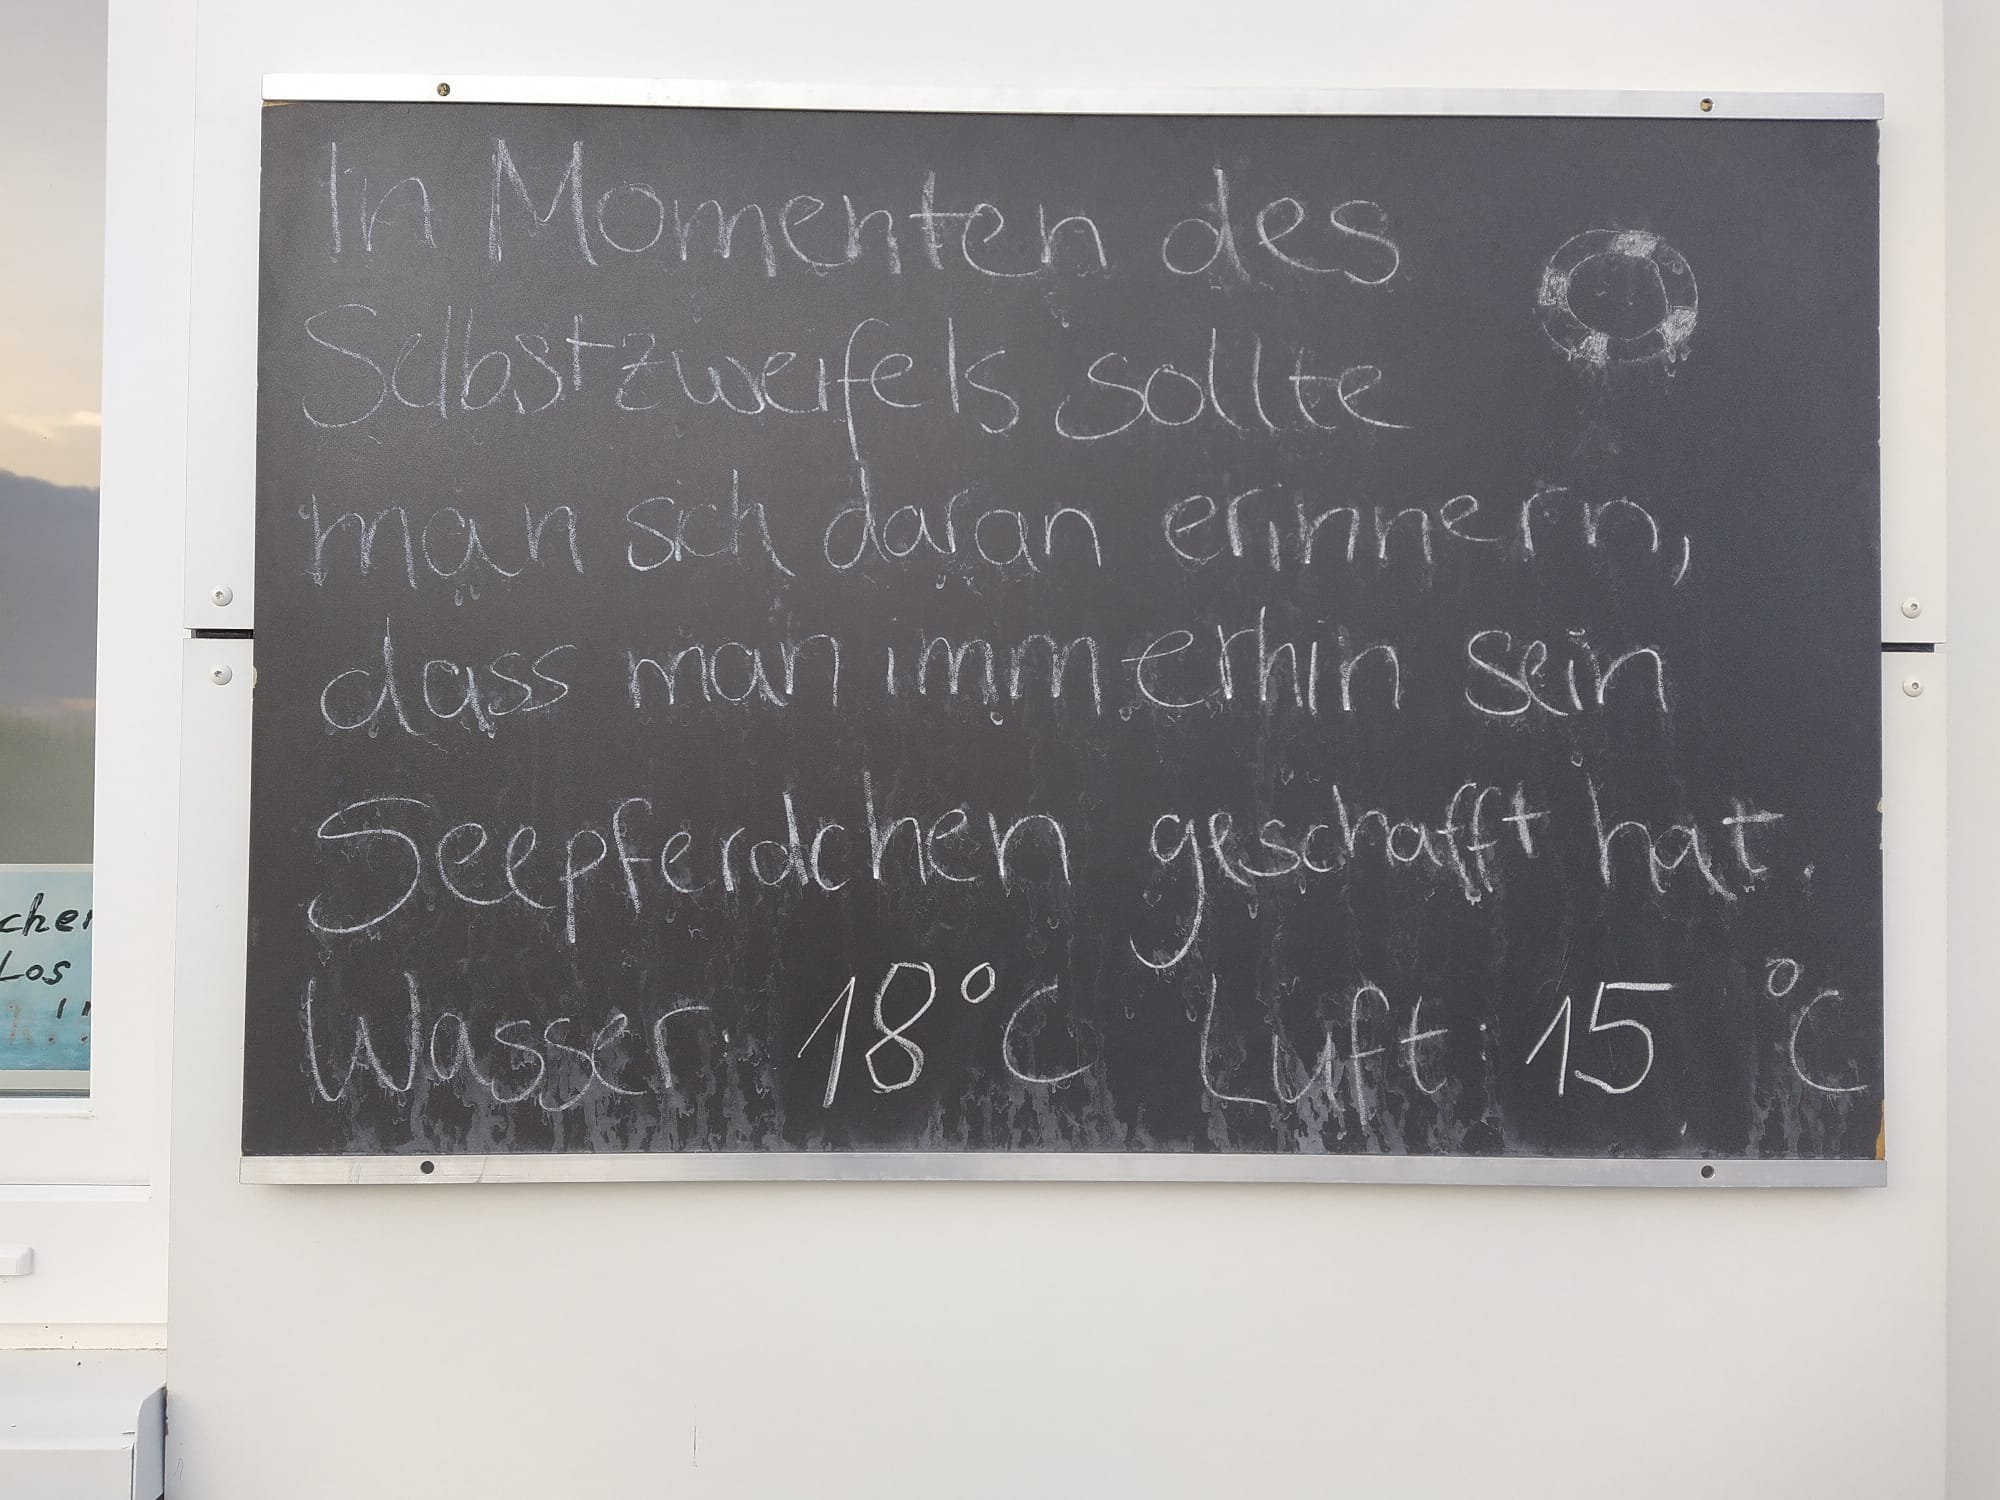 In Momenten des
Selbstzweifels sollte
man sich daran erinnern,
dass man immerhin sein
Seepferdchen geschafft hat.
Wasser: 18°C Luft: 15 °C
Los